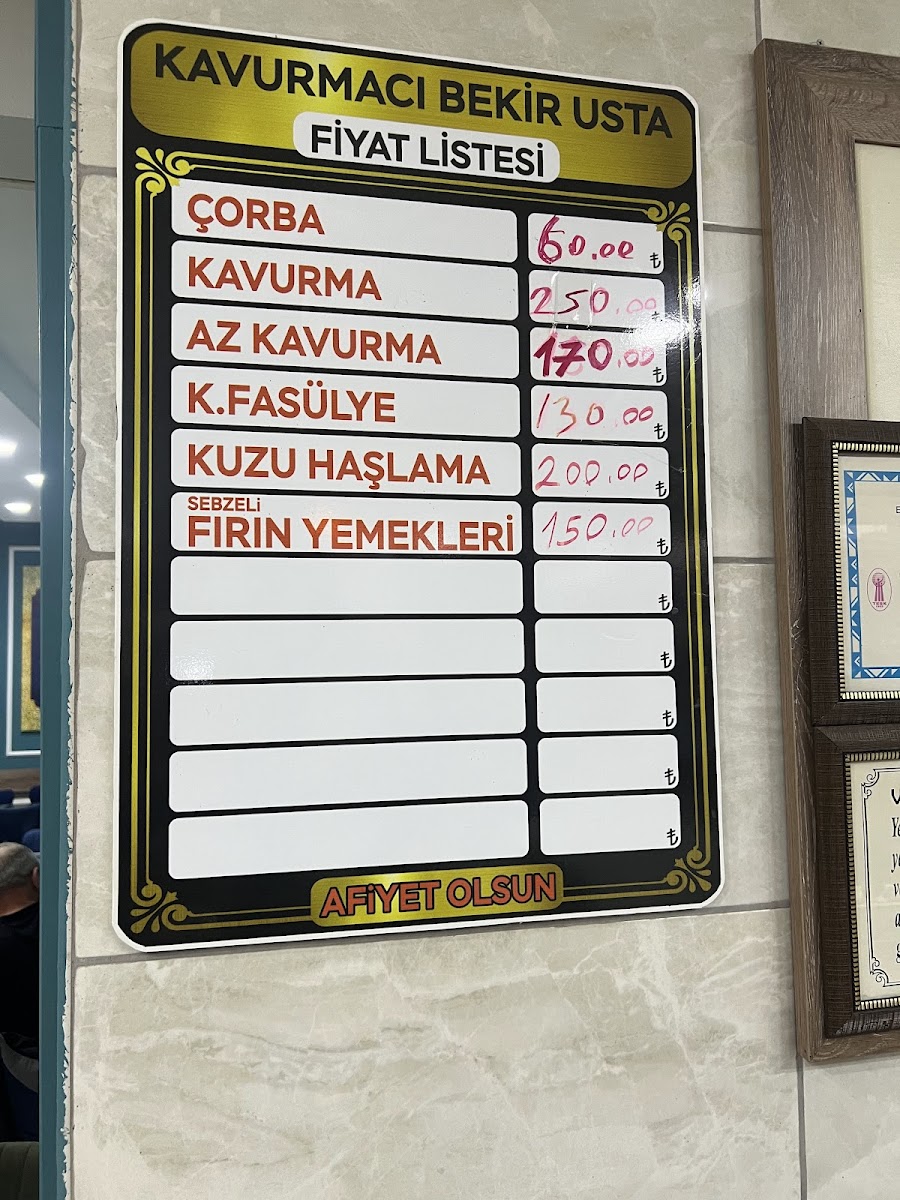 KAVURMACI BEKİR USTA
FİYAT LİSTESİ
ÇORBA 60.00 ₺
KAVURMA 250.00 ₺
AZ KAVURMA 170.00 ₺
K.FASÜLYE 130.00 ₺
KUZU HAŞLAMA 200.00 ₺
SEBZELİ
FIRIN YEMEKLERİ 150.00 ₺
₺
₺
₺
₺
₺
AFİYET OLSUN